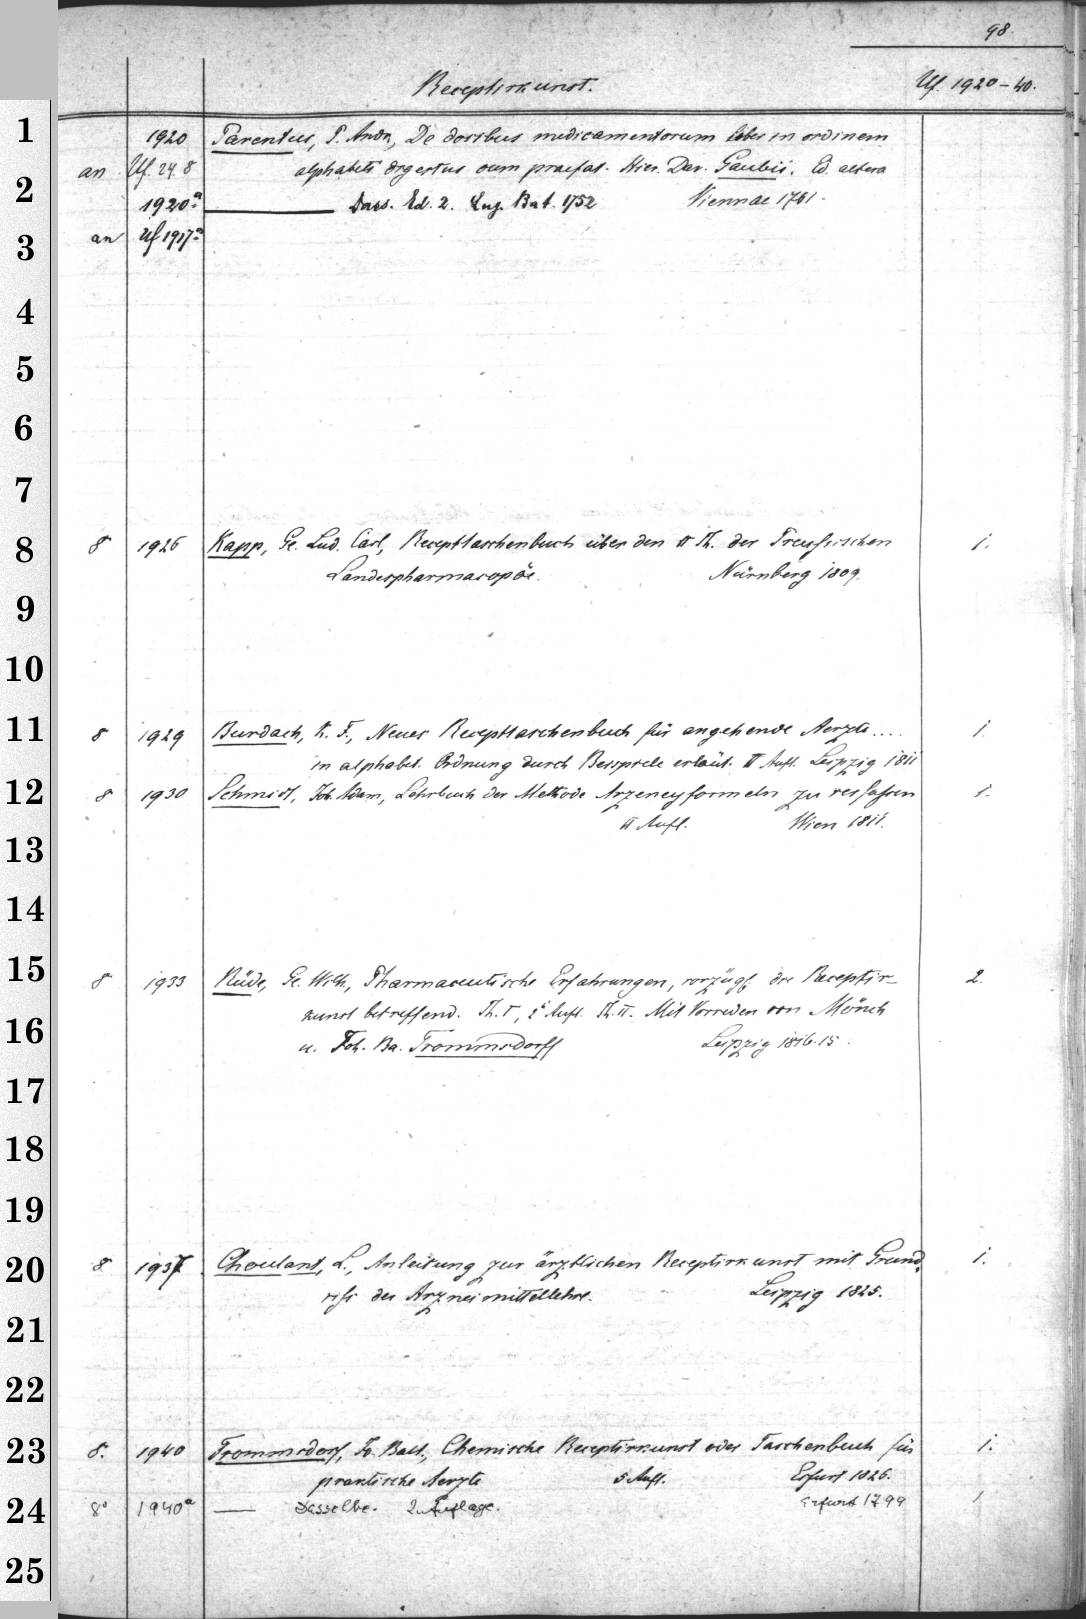 98.
Receptirkunst. Uf. 1920-40.
1 1920 Parentus, P. Andr., De dosibus medicamentorum liber in ordinem
an Uf. 24. 8 alphabeti digestus cum praefat. Hier. Dav. Gaubii. Ed. altera
2 1920a ——— Dass. Ed. 2. Lug. Bat. 1752 Viennae 1761.
3 an Uf 1917a
4
5
6
7
8 8 1926 Kapp, Ge. Lud. Carl, Recepttaschenbuch über den II Th. der Preußischen 1.
Landespharmacopöe. Nürnberg 1809.
9
10
11 8 1929 Burdach, K. F., Neues Recepttaschenbuch für angehende Aerzte.... 1
in alphabet. Ordnung durch Beispiele erläut. II Aufl. Leipzig 1811
12 8 1930 Schmidt, Joh. Adam, Lehrbuch der Methode Arzeneyformeln zu verfassen 1.
II Aufl. Wien 1811.
13
14
15 8 1933 Rüde, Ge. Wilh., Pharmaceutische Erfahrungen, vorzügl. die Receptir- 2.
kunst betreffend. Th. I, 2e Aufl. Th. II. Mit Vorreden von Mönch
16 u. Joh. Ba. Trommsdorff Leipzig 1816.15.
17
18
19
20 8 1937 Choulant, L., Anleitung zur ärztlichen Receptirkunst mit Grund- 1.
riß der Arzneimittellehre. Leipzig 1825.
21
22
23 8. 1940 Trommsdorf, Jo. Bart., Chemische Receptirkunst oder Taschenbuch für 1.
practische Aerzte 5 Aufl. Erfurt 1826.
24 8° 1940a — Dasselbe. 2. Auflage. Erfurt 1799 1
25